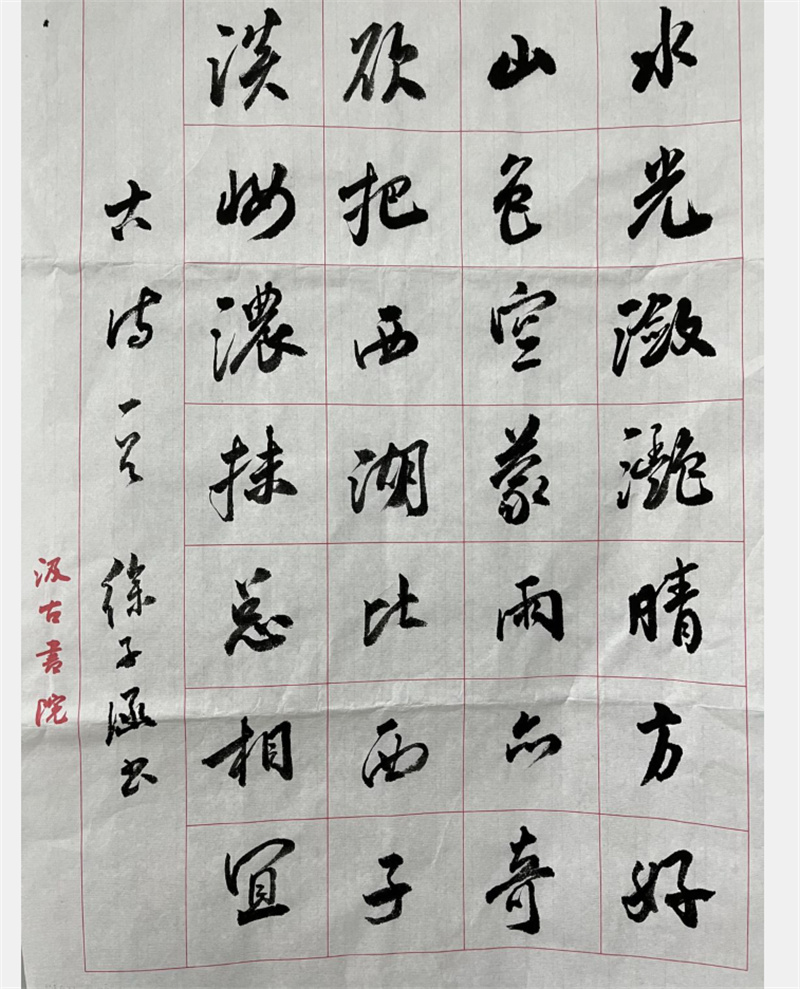 水光潋灧晴方好
山色空蒙雨亦奇
欲把西湖比西子
淡妝濃抹总相宜
古诗一首 徐子涵书
汲古書院